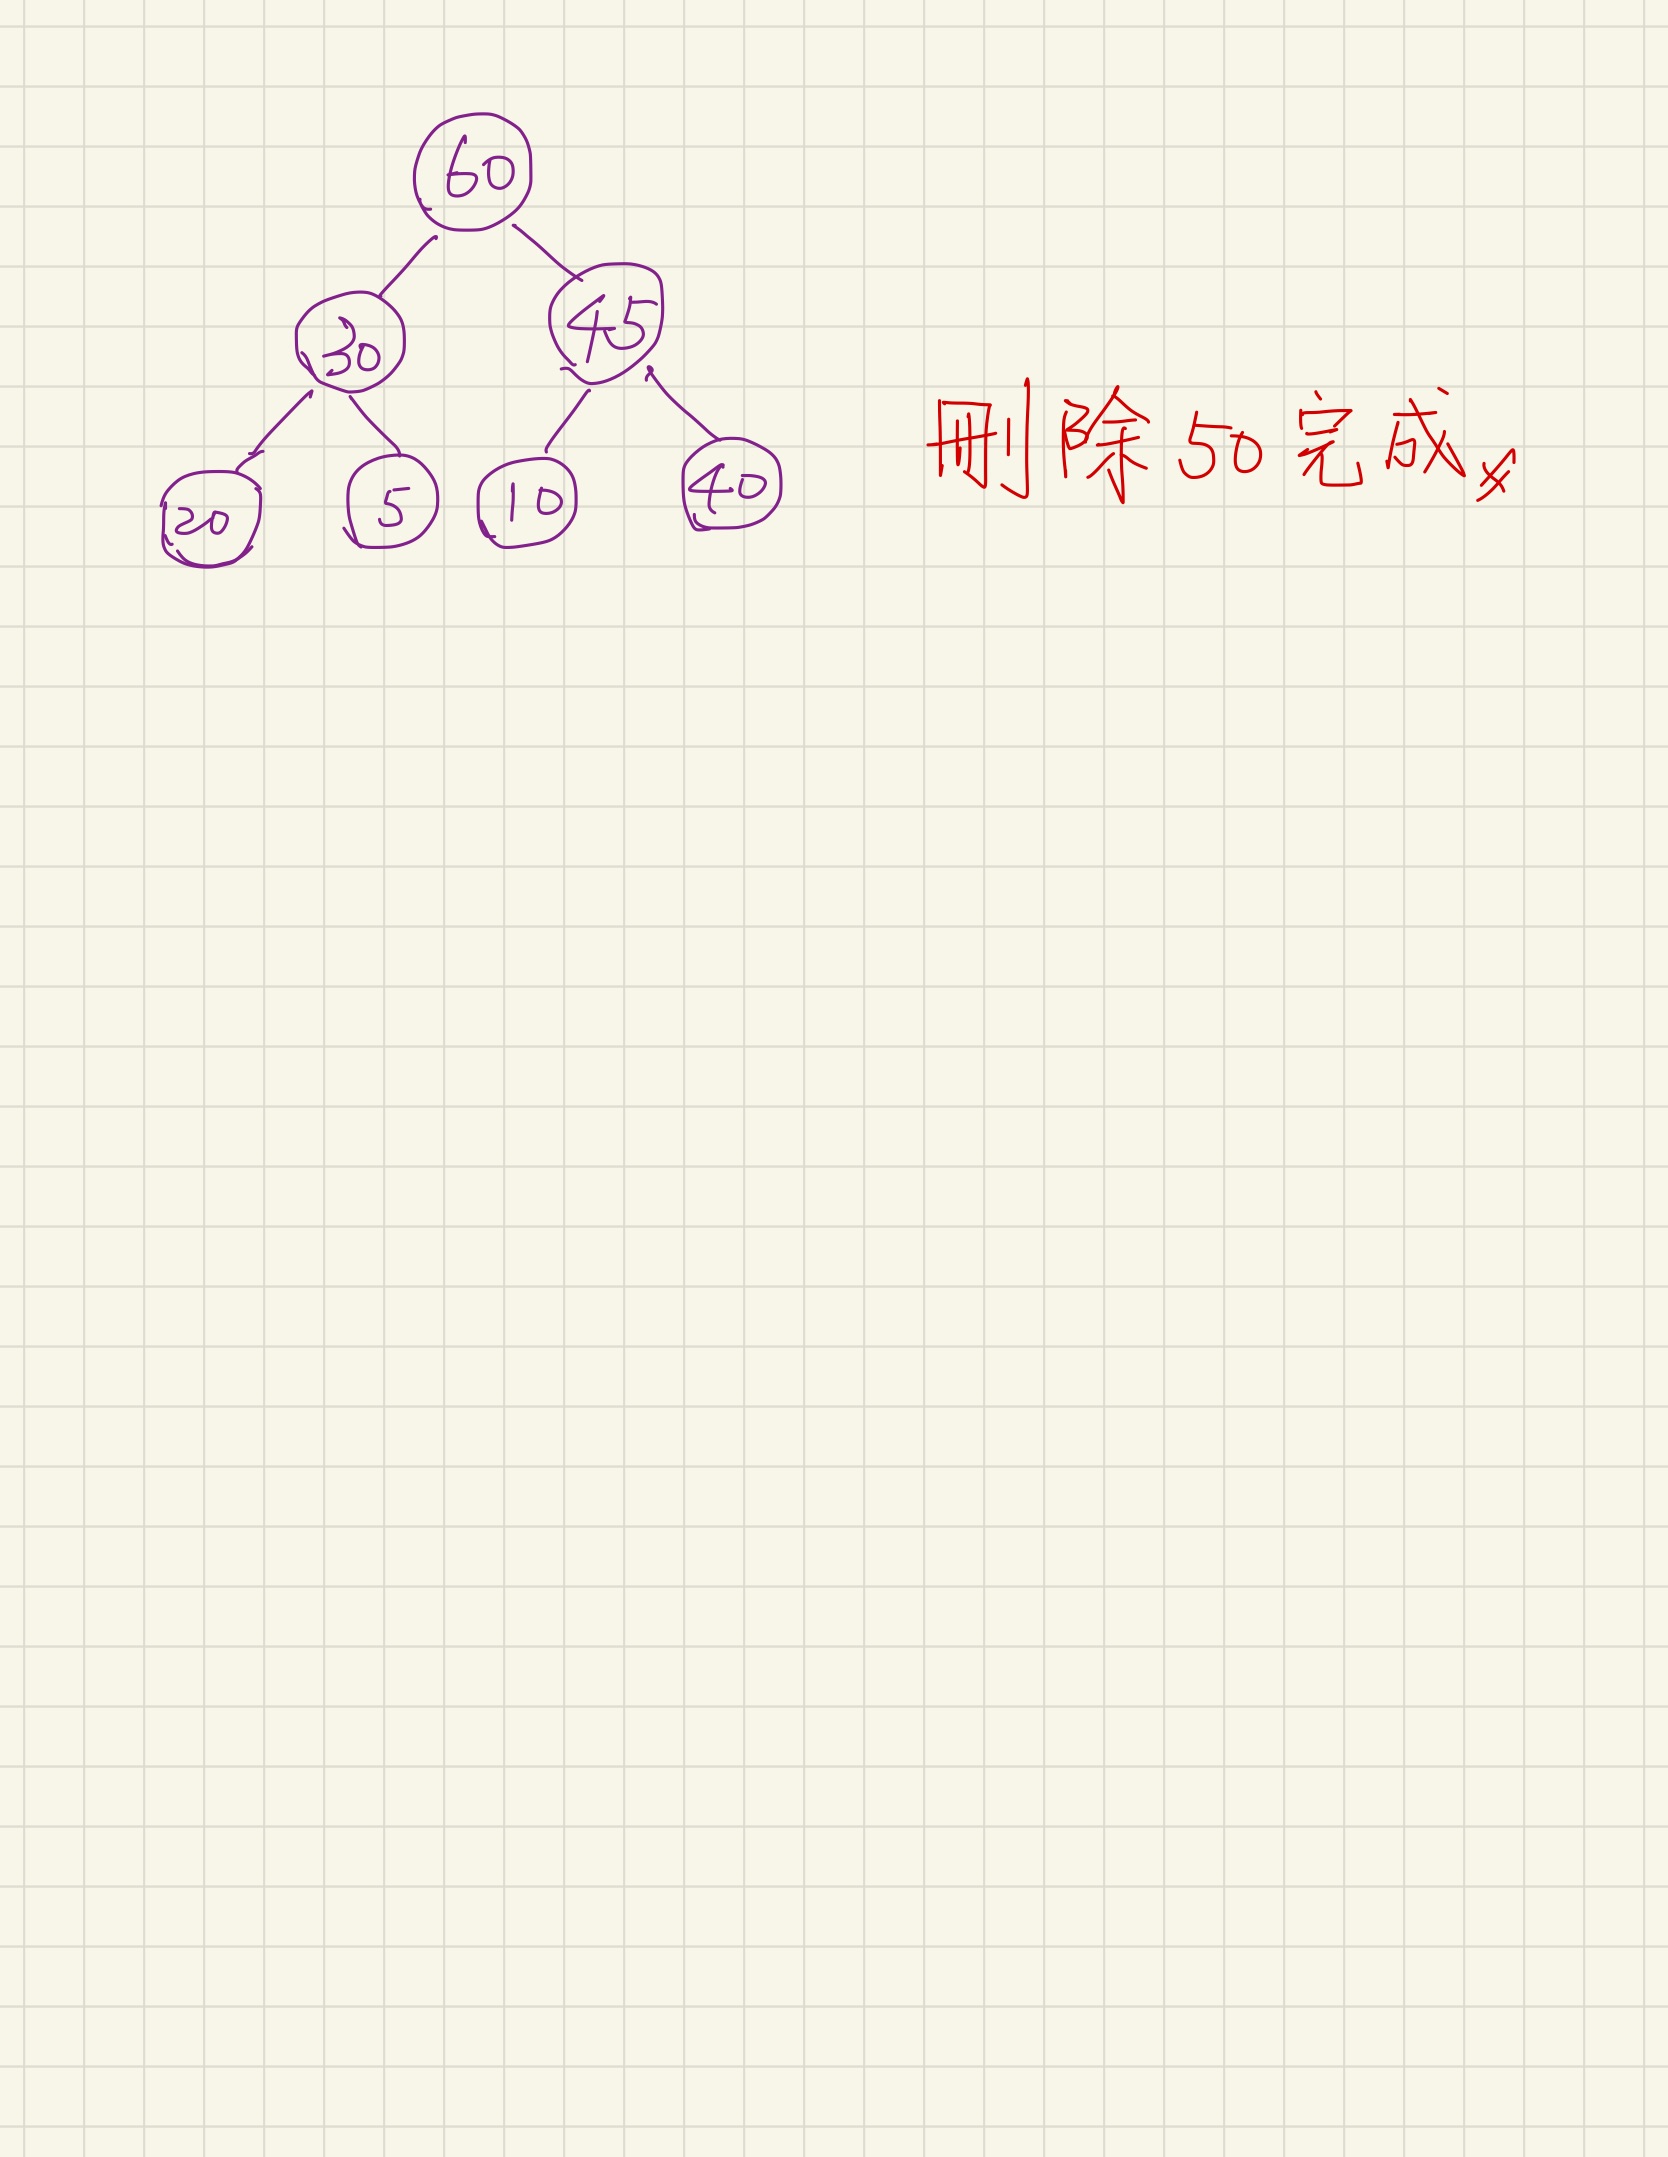 60
30 45
20 5 10 40
刪除50完成